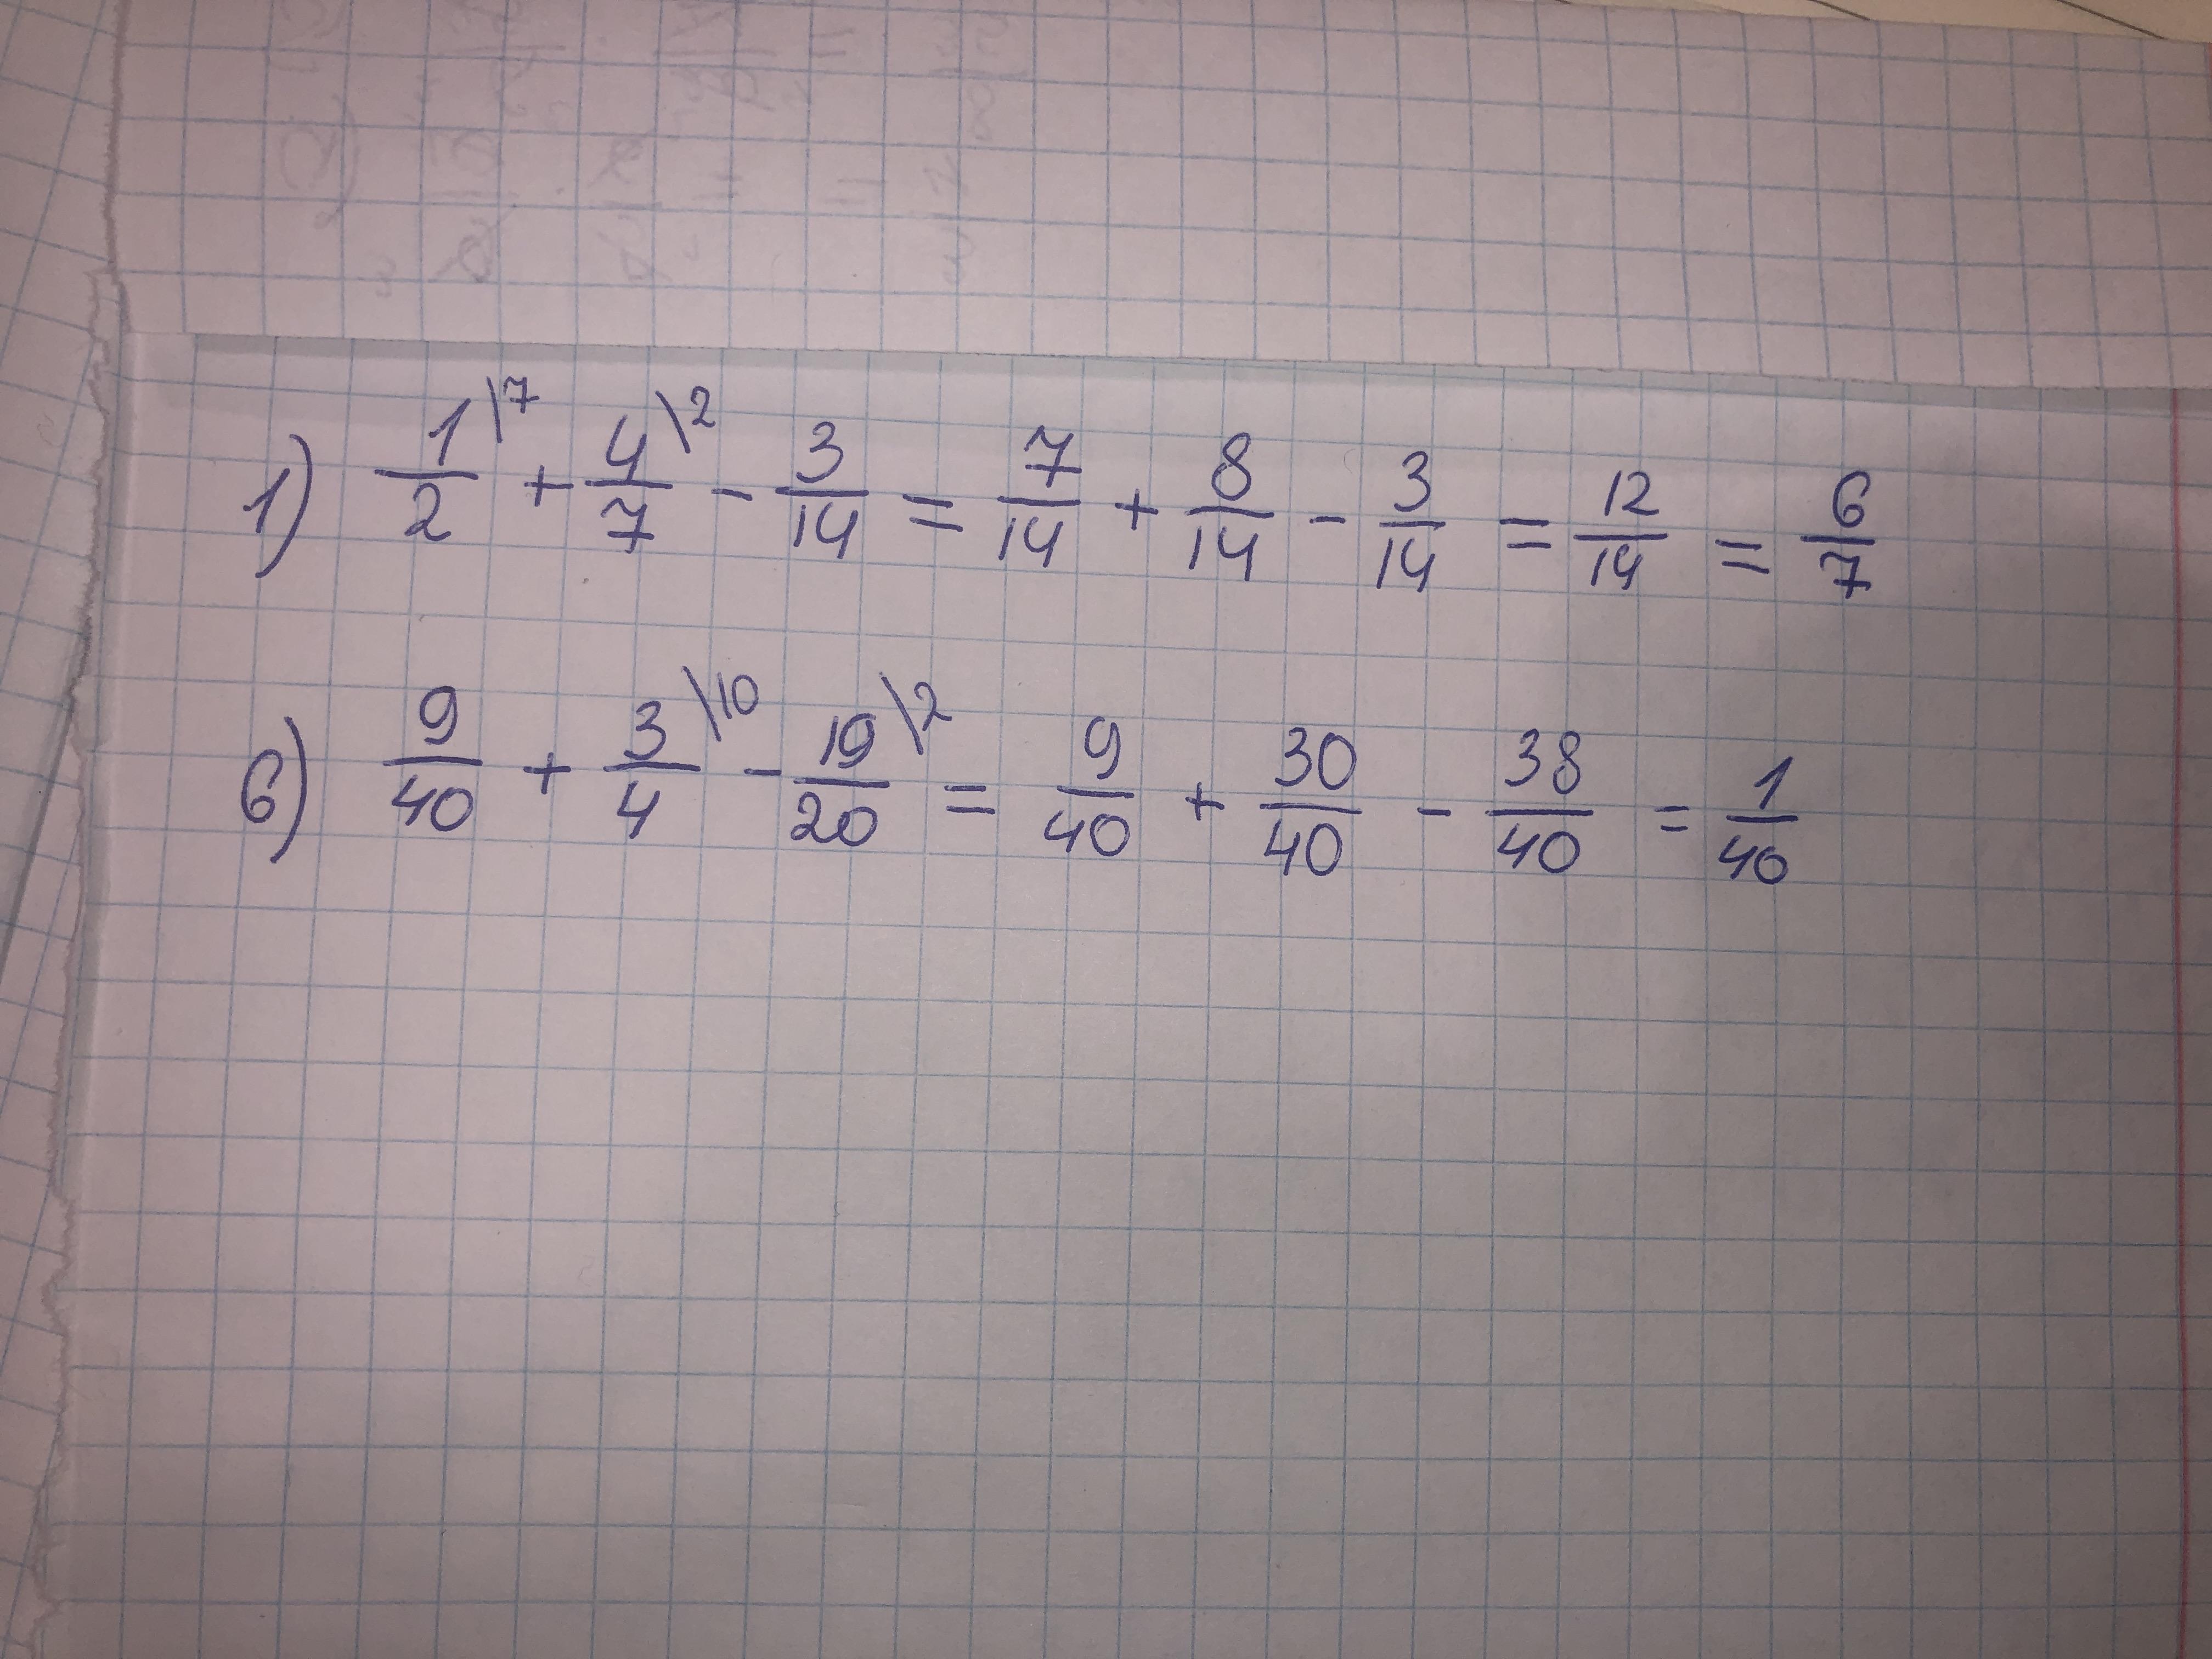 1) 1/2 \7 + 4/7 \2 - 3/14 = 7/14 + 8/14 - 3/14 = 12/14 = 6/7
6) 9/40 + 3/4 \10 - 19/20 \2 = 9/40 + 30/40 - 38/40 = 1/40